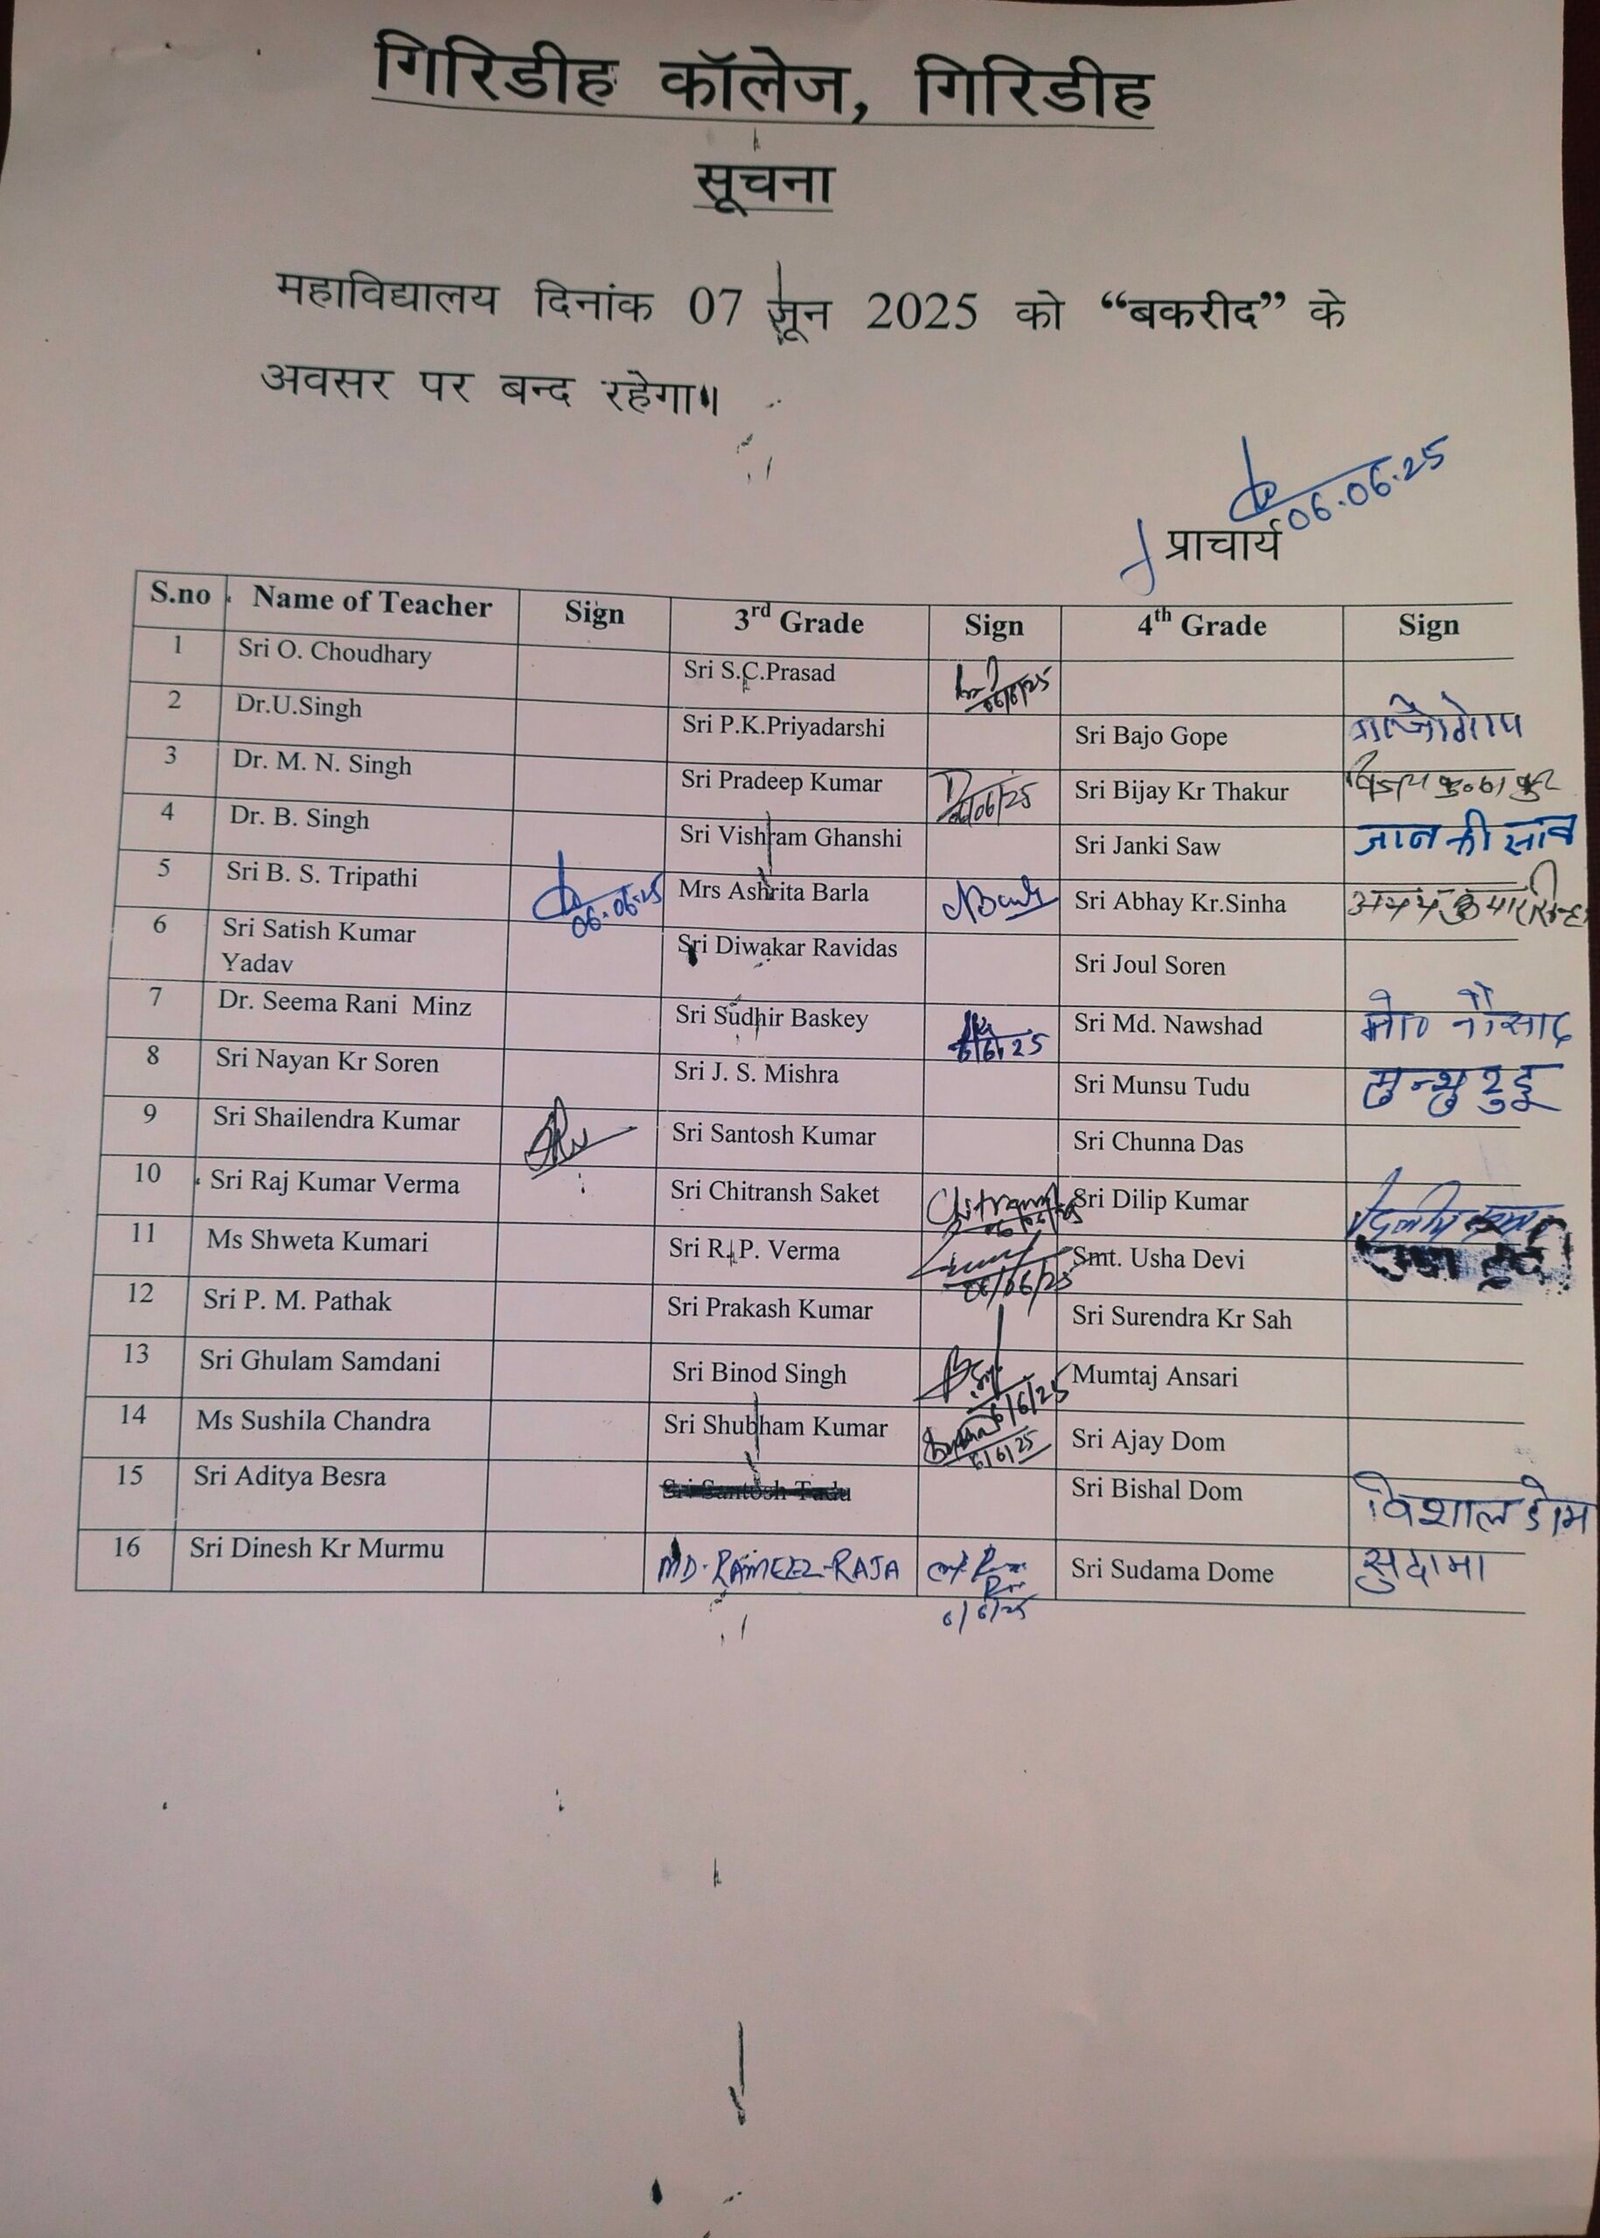 गिरिडीह कॉलेज, गिरिडीह
सूचना
महाविद्यालय दिनांक 07 जून 2025 को “बकरीद” के
अवसर पर बन्द रहेगा।
06.06.25
प्राचार्य
S.no Name of Teacher Sign 3rd Grade Sign 4th Grade Sign
1 Sri O. Choudhary Sri S.C.Prasad 06/6/25
2 Dr.U.Singh Sri P.K.Priyadarshi Sri Bajo Gope
3 Dr. M. N. Singh Sri Pradeep Kumar 06/06/25 Sri Bijay Kr Thakur
4 Dr. B. Singh Sri Vishram Ghanshi Sri Janki Saw जानकी साव
5 Sri B. S. Tripathi 06.06.25 Mrs Ashrita Barla Sri Abhay Kr.Sinha
6 Sri Satish Kumar Yadav Sri Diwakar Ravidas Sri Joul Soren
7 Dr. Seema Rani Minz Sri Sudhir Baskey 6/6/25 Sri Md. Nawshad मो० नौसाद
8 Sri Nayan Kr Soren Sri J. S. Mishra Sri Munsu Tudu
9 Sri Shailendra Kumar Sri Santosh Kumar Sri Chunna Das
10 Sri Raj Kumar Verma Sri Chitransh Saket Sri Dilip Kumar
11 Ms Shweta Kumari Sri R. P. Verma 06/06/25 Smt. Usha Devi
12 Sri P. M. Pathak Sri Prakash Kumar Sri Surendra Kr Sah
13 Sri Ghulam Samdani Sri Binod Singh 6/6/25 Mumtaj Ansari
14 Ms Sushila Chandra Sri Shubham Kumar 6/6/25 Sri Ajay Dom
15 Sri Aditya Besra Sri Santosh Tudu Sri Bishal Dom विशाल डोम
16 Sri Dinesh Kr Murmu MD. RAMEEZ RAJA 6/6/25 Sri Sudama Dome सुदामा